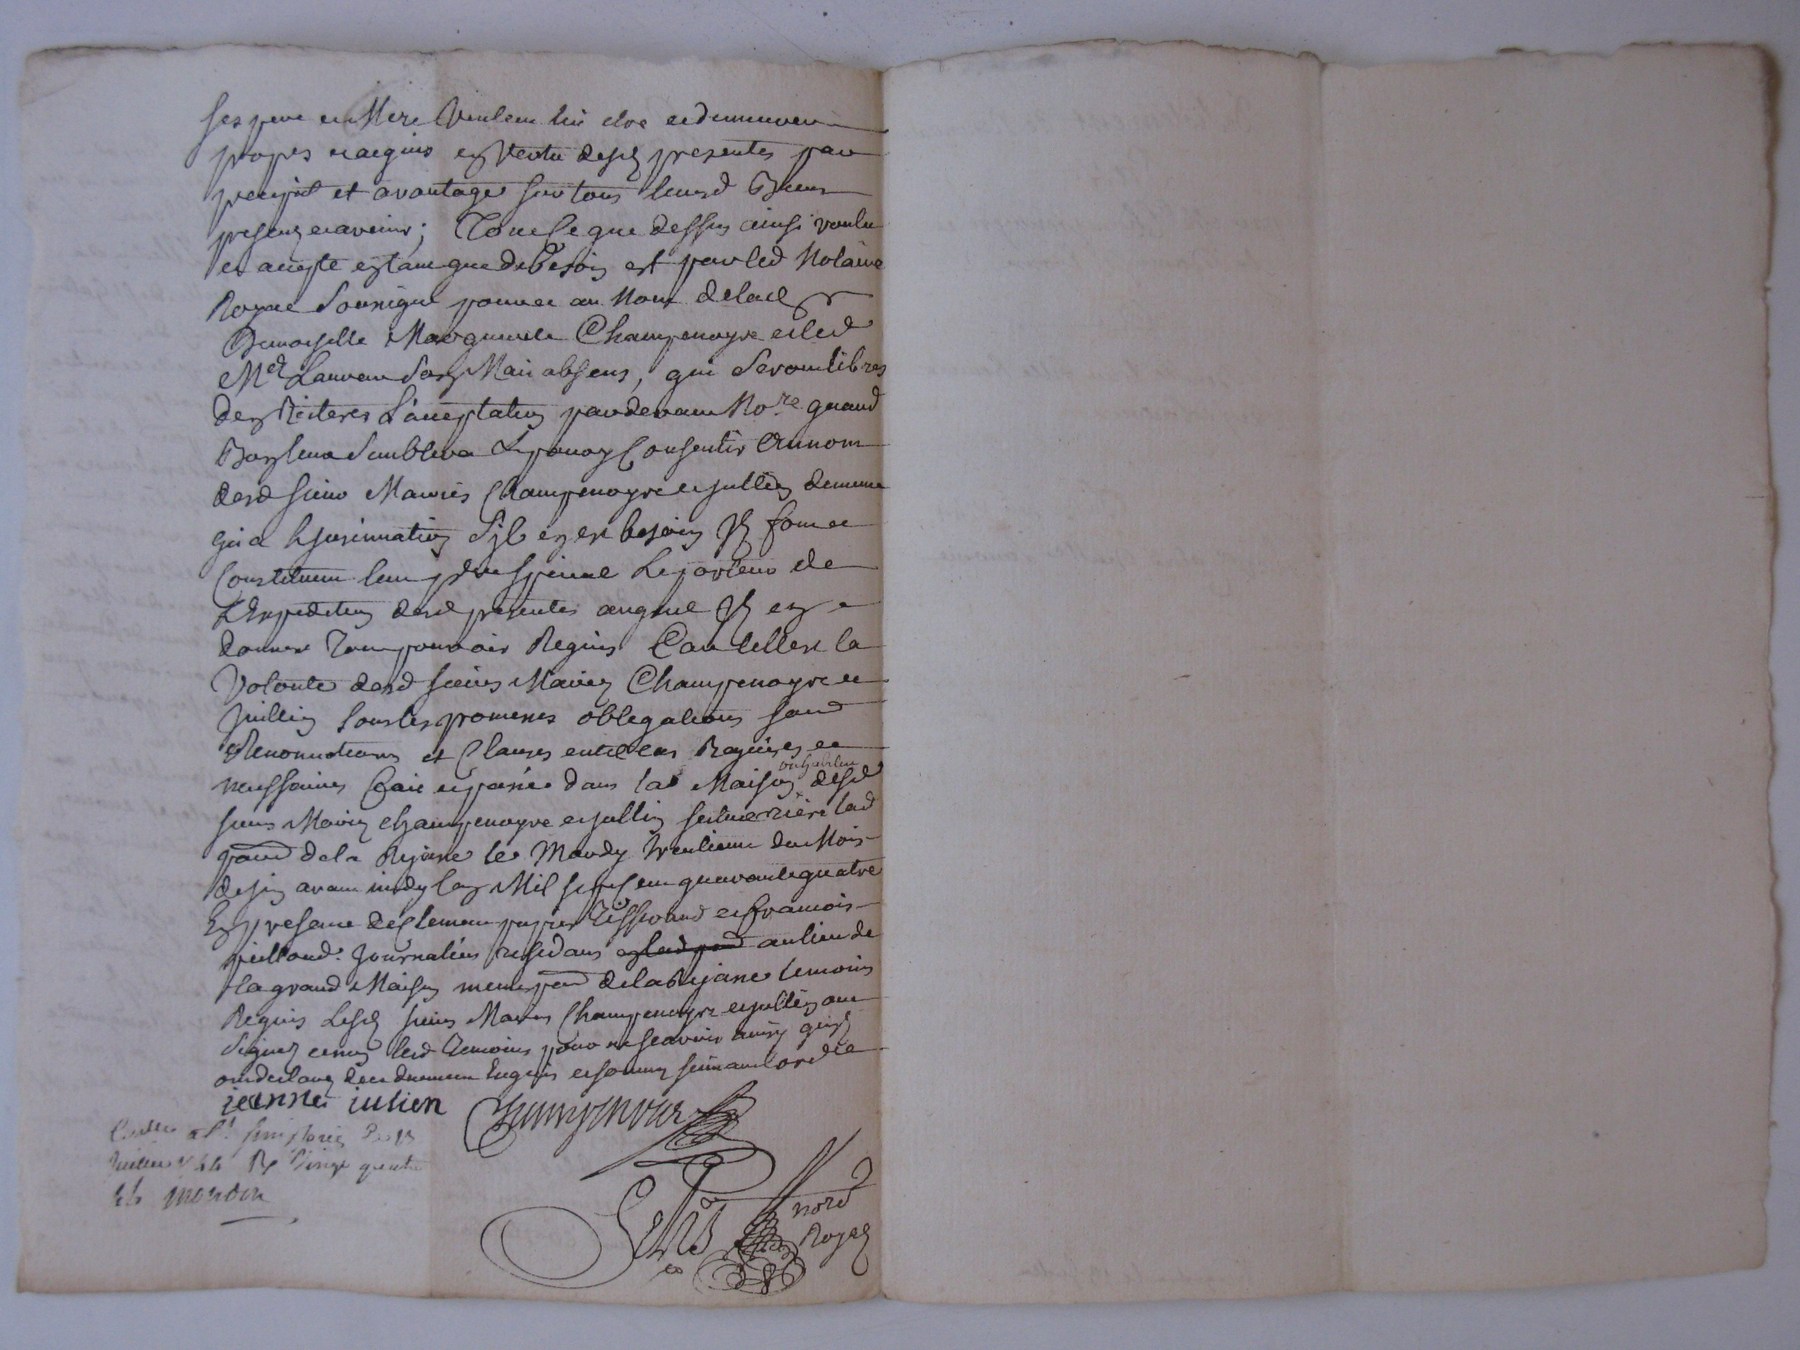 ses pere et Mere Veulent lui etre et demeurer
propres et acquis en Vertu desd presentes par
preciput et avantage sur tous leursd Biens
presens et avenir; Tout ce que dessus ainsi voulu
et accepté en tant que de Besoin est par led Notaire
Royal Soussigné pour et au Nom de lad
Demoiselle Marguerite Champenoyre et led
Me Laurent Son Mari absens, qui seront libres
de Reiterer L'acceptation pardevant Nore quand
Bon leur Semblera & pour y Consentir au nom
desd sieur Mariés Champenoyre et jullien dememe
qu'a L'jnsinuation S'jl en est besoin jls font et
Constituent leur preur special Le porteur de
L'Expedition desd presentes auquel jls en
donnent Tout pouvoir Requis Car telle est la
Volonté desd sieurs Mariez Champenoyre et
Jullien sous les promesses obligations
Renonciations et Clauses entelcas Requises et
necessaires fait et passé dans la Maison desd
ou habitent
sieurs Mariez champenoyre et jullien lad
parr de la Rejasse le Mardy trentieme du Mois
de juin avant midy l'an Mil sept cent quarante quatre
En presence de Clement Tisserand et francois
journaliers residans au lieu de
la grand Maison meme parr de la Rejasse temoins
Requis Lesd sieurs Mariez Champenoyre et jullien ont
Signez et non lesd Temoins pour ne scavoir ainsy qu'jls
ont declaré de ce duement Enquis et sommez suivant lordce
jeanne julien Champenoyre
nore
Royal